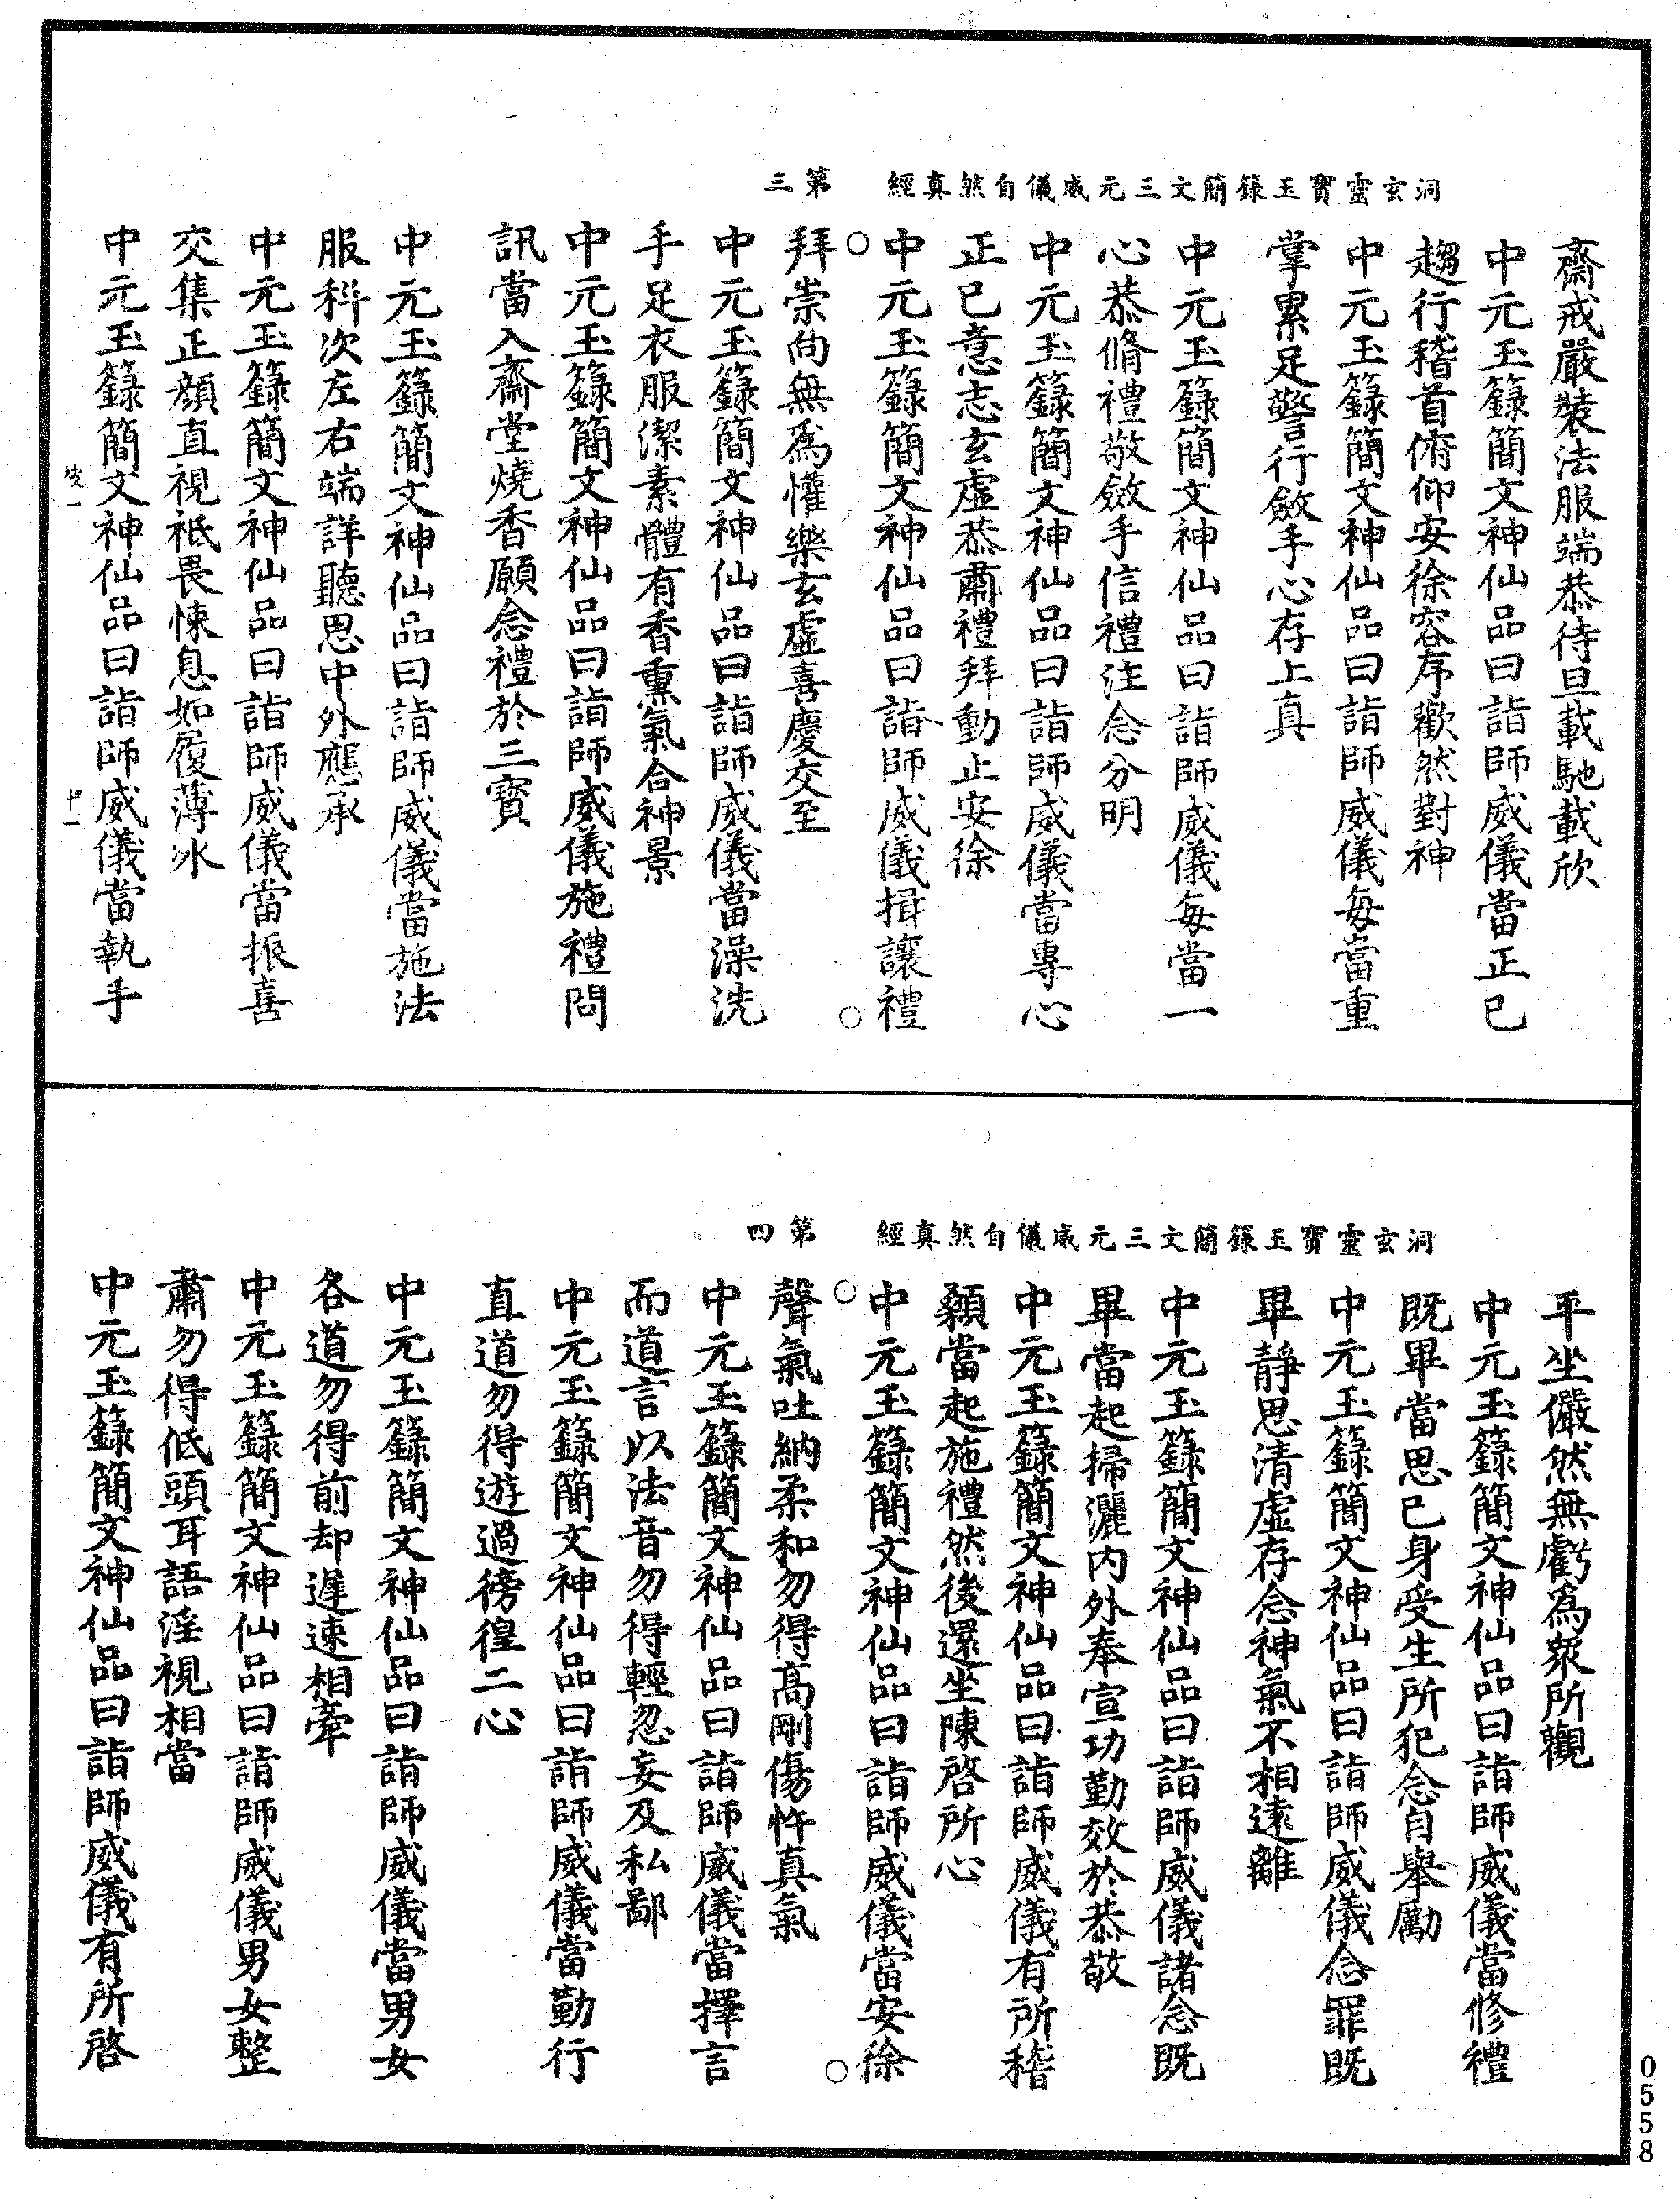 洞玄靈寶玉籙簡文三元威儀自然真經　第三
齋戒嚴裝法服端恭待旦載馳載欣
中元玉籙簡文神仙品曰詣師威儀當正已
趨行稽首俯仰安徐容序歡然對神
中元玉籙簡文神仙品曰詣師威儀每當重
掌累足警行斂手心存上真
中元玉籙簡文神仙品曰詣師威儀每當一
心恭脩禮敬斂手信禮注念分明
中元玉籙簡文神仙品曰詣師威儀當專心
正已意志玄虛恭肅禮拜動止安徐
中元玉籙簡文神仙品曰詣師威儀揖讓禮
拜崇向無為懽樂玄虛喜慶交至
中元玉籙簡文神仙品曰詣師威儀當澡洗
手足衣服潔素體有香熏氣合神景
中元玉籙簡文神仙品曰詣師威儀施禮問
訊當入齋堂燒香願念禮於三寶
中元玉籙簡文神仙品曰詣師威儀當施法
服科次左右端詳聽思中外應承
中元玉籙簡文神仙品曰詣師威儀當振喜
交集正顏直視祗畏悚息如履薄冰
中元玉籙簡文神仙品曰詣師威儀當執手
洞玄靈寶玉籙簡文三元威儀自然真經　第四
平坐儼然無虧為眾所觀
中元玉籙簡文神仙品曰詣師威儀當修禮
既畢當思已身受生所犯念自舉勵
中元玉籙簡文神仙品曰詣師威儀念罪既
畢靜思清虛存念神氣不相遠離
中元玉籙簡文神仙品曰詣師威儀諸念既
畢當起掃灑內外奉宣功勤效於恭敬
中元玉籙簡文神仙品曰詣師威儀有所稽
顙當起施禮然後還坐陳啓所心
中元玉籙簡文神仙品曰詣師威儀當安徐
聲氣吐納柔和勿得高剛傷忤真氣
中元玉籙簡文神仙品曰詣師威儀當擇言
而道言以法音勿得輕忽妄及私鄙
中元玉籙簡文神仙品曰詣師威儀當勤行
直道勿得遊過徬徨二心
中元玉籙簡文神仙品曰詣師威儀當男女
各道勿得前却遲速相牽
中元玉籙簡文神仙品曰詣師威儀男女整
肅勿得低頭耳語淫視相當
中元玉籙簡文神仙品曰詣師威儀有所啓
0558